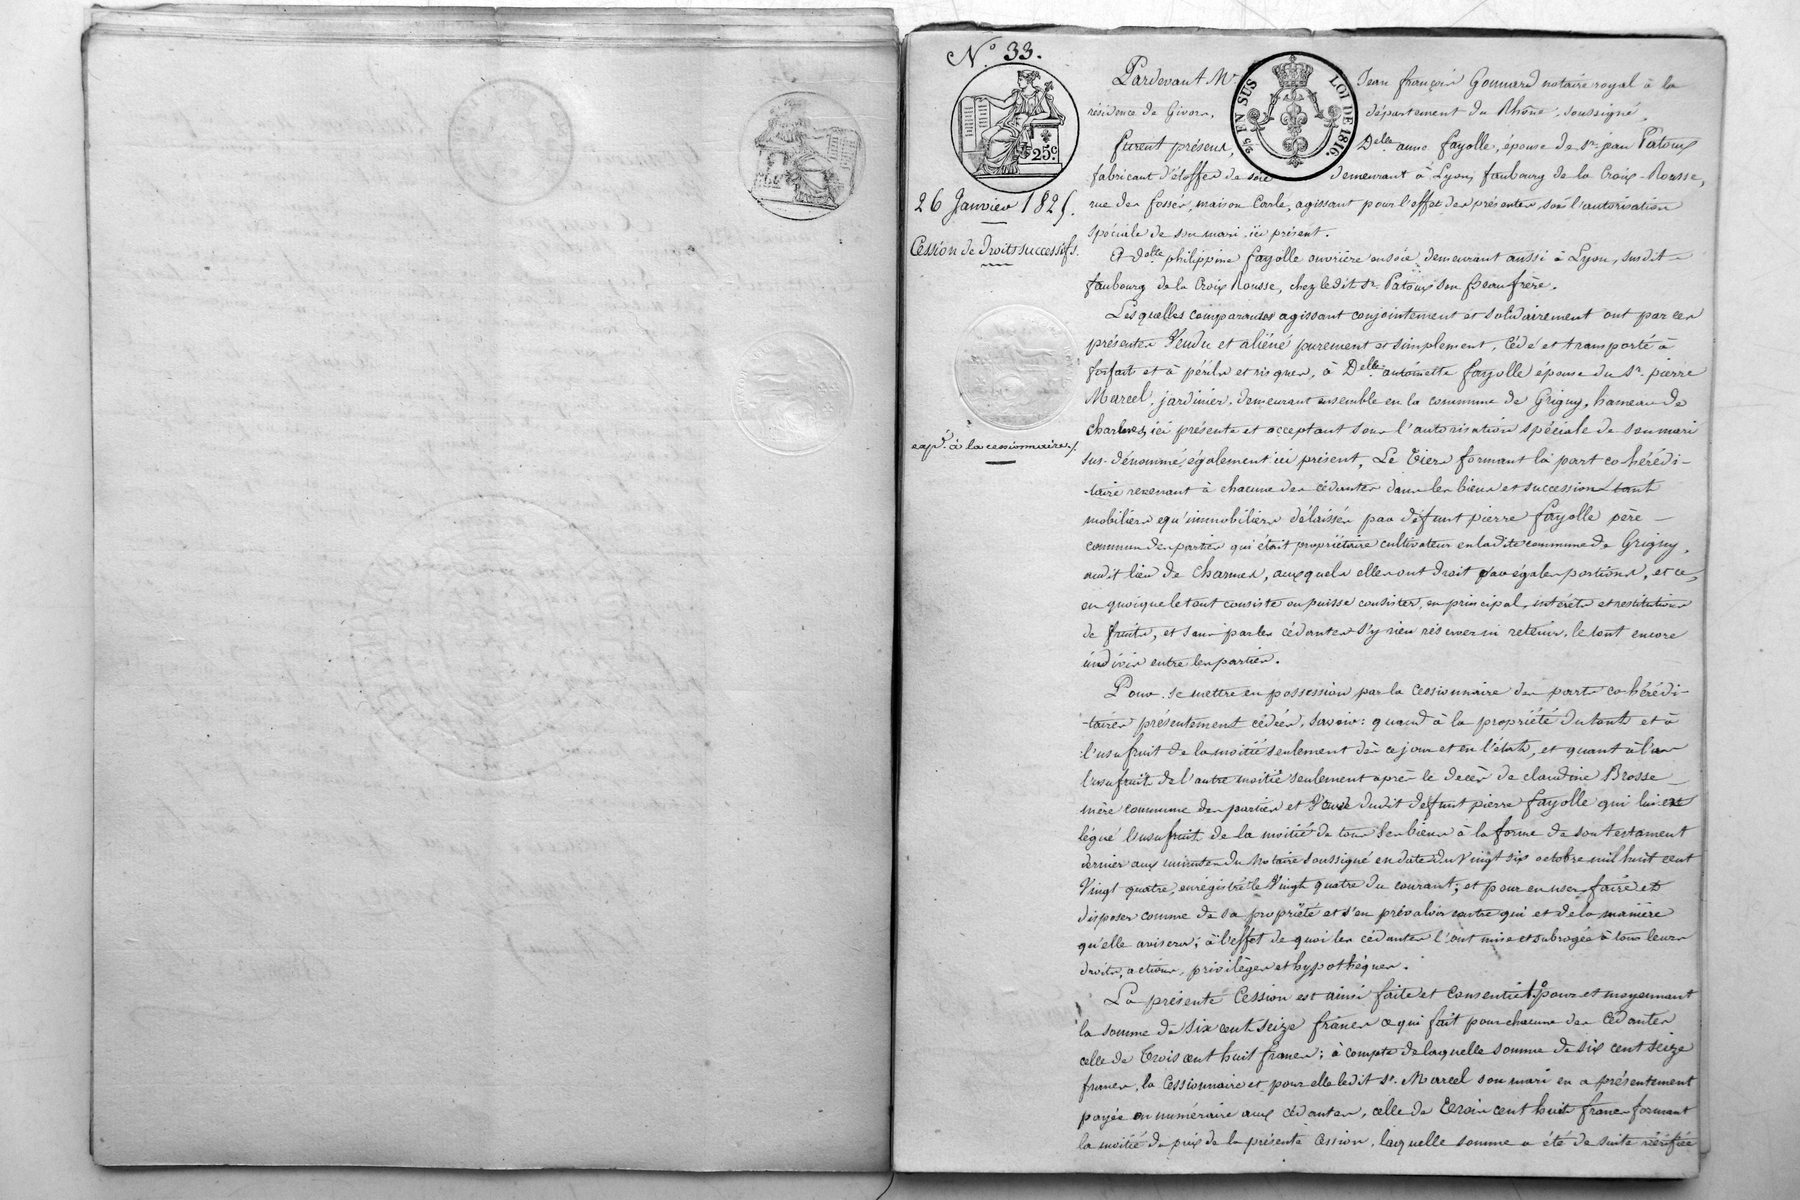 N.º 33.
25 c.
25 EN SUS LOI DE 1816.
26 Janvier 1825.
Cession de droits successifs.
exp.on à la cessionnaire./.
Pardevant Me Jean françois Gonnard notaire royal à la
résidence de Givors, département du Rhône, soussigné,
furent présents, Delle anne fayolle, épouse de Sr jean Patoux
fabricant d'étoffes de soie demeurant à Lyon, faubourg de la Croix-Rousse,
rue des fossés, maison Carle, agissant pour l'effet des présentes, sous l'autorisation
spéciale de son mari ici présent.
Et delle philippine fayolle ouvrière en soie, demeurant aussi à Lyon, susdit
faubourg de la Croix Rousse, chez ledit Sr Patoux son beau frère.
Lesquelles comparantes agissant conjointement et solidairement ont par ces
présentes Vendu et aliéné purement et simplement, cédé et transporté à
forfait et à périls et risques, à Delle antoinette fayolle épouse du Sr pierre
Marcel, jardinier, demeurant ensemble en la commune de Grigny, hameau de
charmes, ici présente et acceptant sous l'autorisation spéciale de son mari
sus-dénommé, également ici présent, Le Tiers formant la part co-hérédi-
-taire revenant à chacune des cédantes dans les biens et succession tant
mobiliers qu'immobiliers délaissés par défunt pierre fayolle père
commun des parties qui était propriétaire cultivateur en ladite commune de Grigny,
audit lieu de charmes, auxquels elles ont droit par égales portions, et ce,
en quoique le tout consiste ou puisse consister, en principal, intérêts et restitutions
de fruits, et sans par les cédantes s'y rien réserver ni retenir, le tout encore
indivis entre les parties.
Pour se mettre en possession par la cessionnaire des parts co-hérédi-
-taires présentement cédées, savoir: quand à la propriété du tout et à
l'usufruit de la moitié seulement dès ce jour et en l'état, et quant à l'us
l'usufruit de l'autre moitié seulement après le décès de claudine Brosse
mère commune des parties et Veuve dudit défunt pierre fayolle qui lui a
légué l'usufruit de la moitié de tous ses biens à la forme de son testament
dernier aux minutes du Notaire soussigné en date du Vingt six octobre mil huit cent
Vingt quatre, enregistré le Vingt quatre du courant; et pour en user, faire et
disposer comme de sa propriété et s'en prévaloir contre qui et de la manière
qu'elle avisera; à l'effet de quoi les cédantes l'ont mise et subrogée à tous leurs
droits, actions, privilèges et hypothèques.
La présente Cession est ainsi faite et consentie 1.º pour et moyennant
la somme de six cent seize francs ce qui fait pour chacune des cédantes
celle de Trois cent huit francs; à compte de laquelle somme de six cent seize
francs, la Cessionnaire et pour elle ledit Sr. Marcel son mari en a présentement
payée en numéraire aux cédantes, celle de Trois cent huit francs formant
la moitié du prix de la présente Cession, laquelle somme a été de suite vérifiée